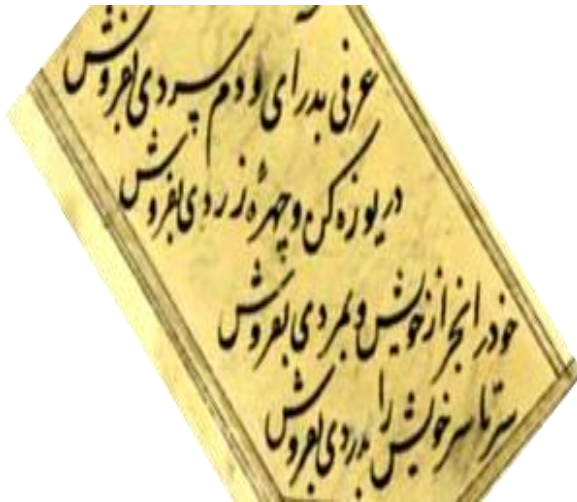 عرفی بدرای و دم سردی بفروش
دریوزه کن و چهره زردی بفروش
خود را بخر از خویش و بمردی بفروش
سرتاسر خویش را بدردی بفروش